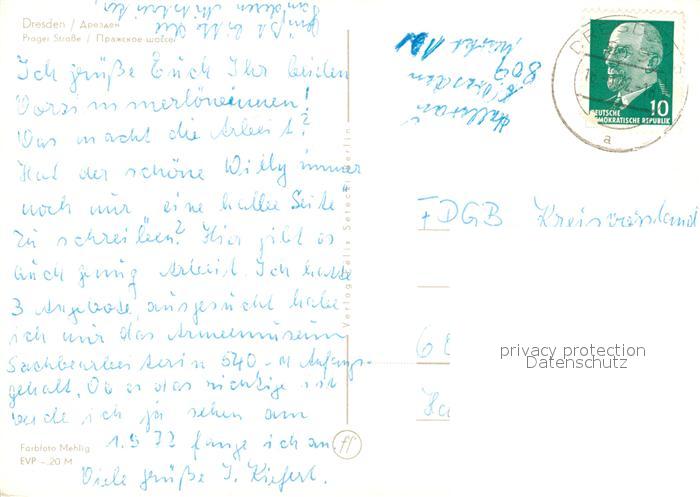 Dresden / Дрезден
Prager Straße / Пражское шоссе
Ich grüße Euch Ihr beiden
Vorzimmerlöwinnen!
Was macht die Arbeit?
Hat der schöne Willy immer
noch nur eine halbe Seite
zu schreiben? Hier gibt es
auch genug Arbeit. Ich hatte
3 Angebote, ausgesucht habe
ich mir das Armeemuseum
Sachbearbeiterin 540,-M Anfangs-
gehalt. Ob es das richtige ist
werde ich ja sehen am
1.9 72 fange ich an.
Viele grüße I. Kiefert.
Farbfoto Mehlig
EVP –.20 M
Verlag Felix Setecki, Berlin
809
Dresden
DEUTSCHE
DEMOKRATISCHE REPUBLIK
10
a
FDGB Kreisvorstand
privacy protection
Datenschutz